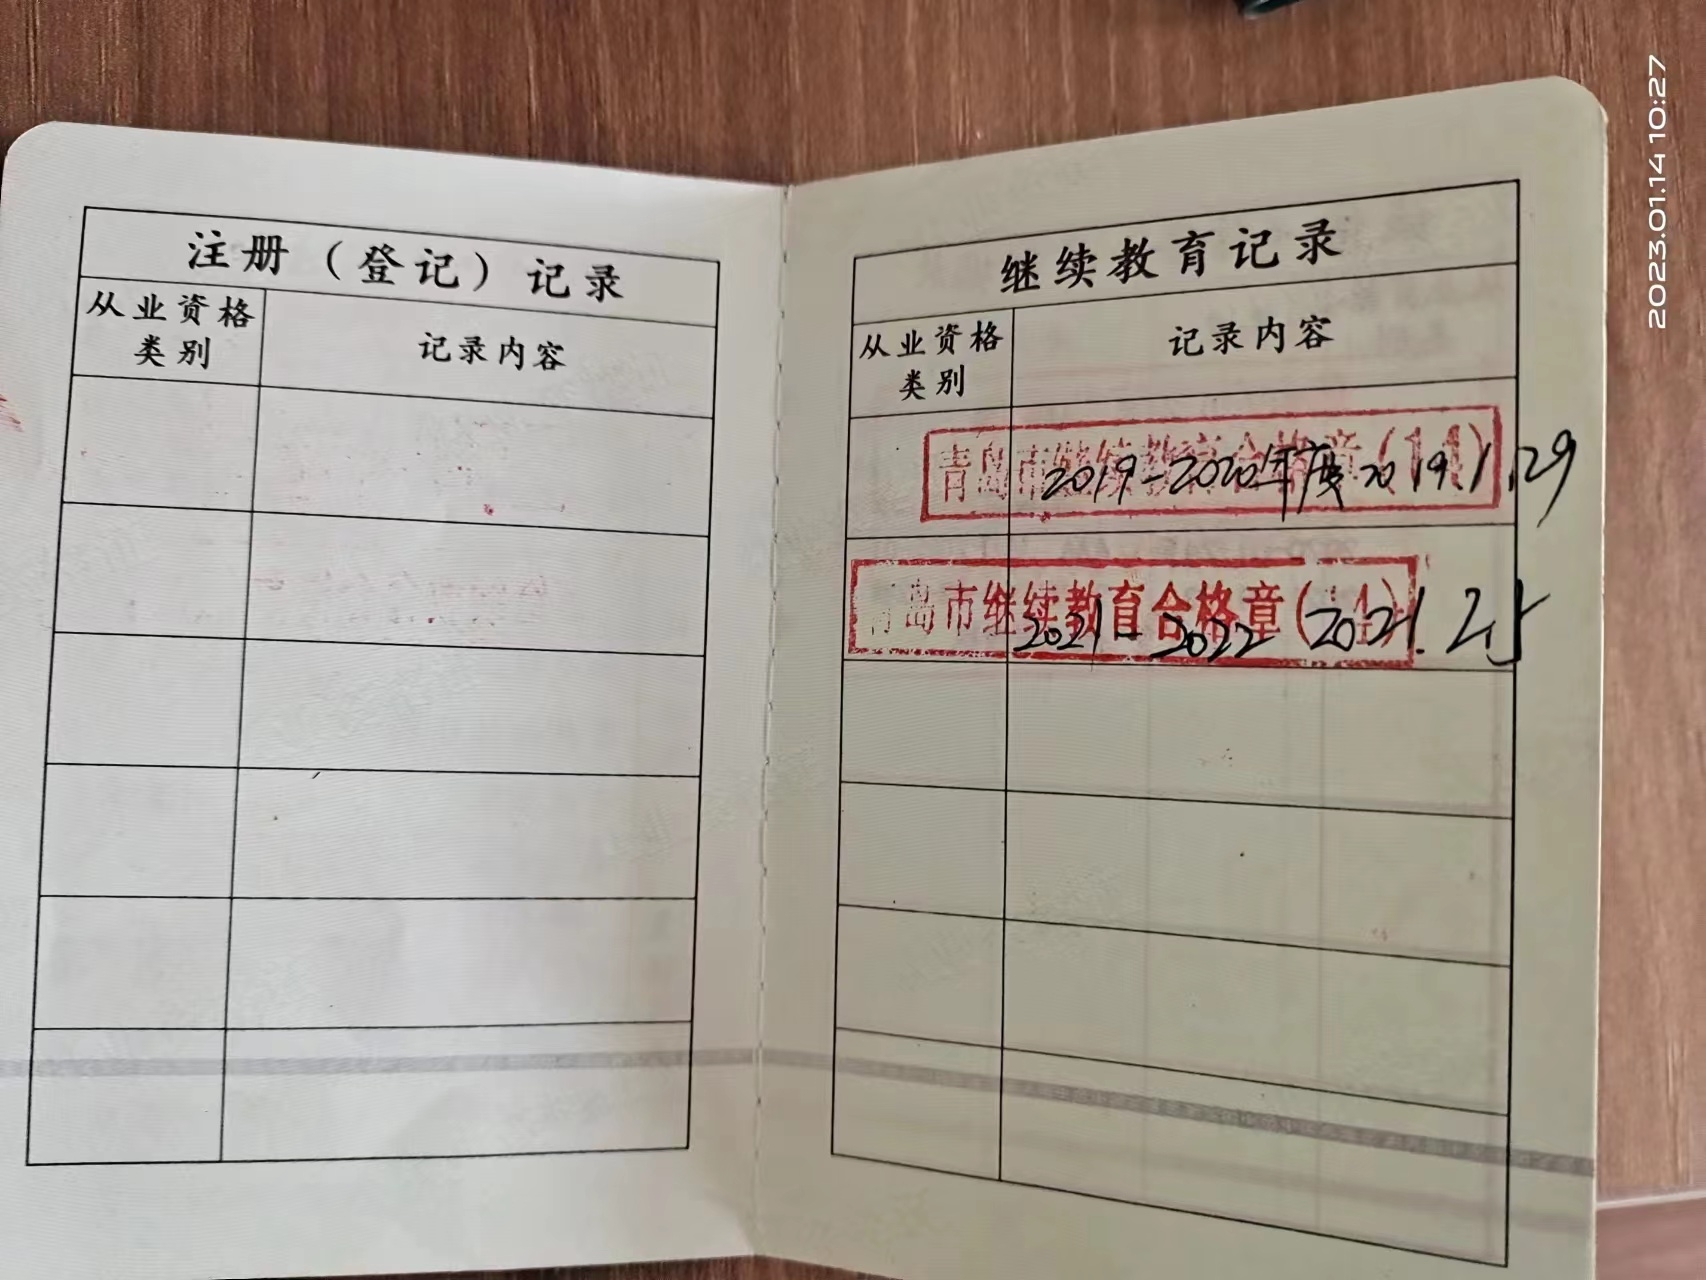 注册（登记）记录
从业资格
类别
记录内容
继续教育记录
从业资格
类别
记录内容
青岛市继续教育合格章(11)
2019-2020年度 2019.1.29
青岛市继续教育合格章(11)
2021-2022 2021.2.5
2023.01.14 10:27